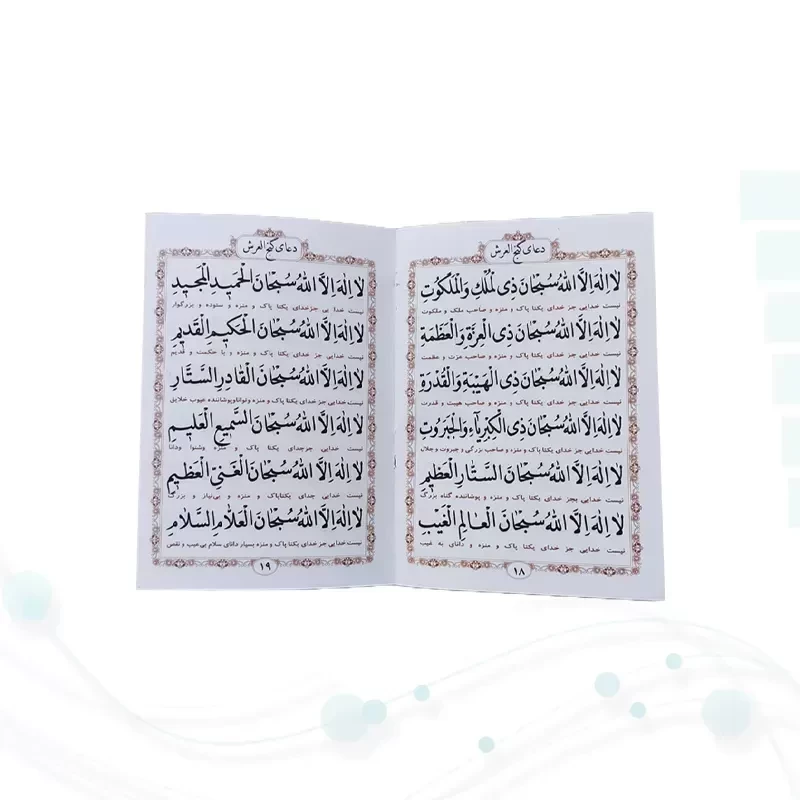 دعای گنج العرش
لَا اِلٰهَ اِلَّا اللّٰهُ سُبْحَانَ ذِی الْمُلْكِ وَ الْمَلَكُوتِ
نیست خدایی جز خدای یکتا پاک و منزه و صاحب ملک و ملکوت
لَا اِلٰهَ اِلَّا اللّٰهُ سُبْحَانَ ذِی الْعِزَّةِ وَ الْعَظَمَةِ
نیست خدایی جز خدای یکتا پاک و منزه و صاحب عزت و عظمت
لَا اِلٰهَ اِلَّا اللّٰهُ سُبْحَانَ ذِی الْهَيْبَةِ وَ الْقُدْرَةِ
نیست خدایی جز خدای یکتا پاک و منزه و صاحب هیبت و قدرت
لَا اِلٰهَ اِلَّا اللّٰهُ سُبْحَانَ ذِی الْكِبْرِيَآءِ وَ الْجَبَرُوتِ
نیست خدایی جز خدای یکتا پاک و منزه و صاحب بزرگی و جبروت و جلال
لَا اِلٰهَ اِلَّا اللّٰهُ سُبْحَانَ السَّتَّارِ الْعَظِيمِ
نیست خدایی بجز خدای یکتا پاک و منزه و پوشاننده گناه بزرگ
لَا اِلٰهَ اِلَّا اللّٰهُ سُبْحَانَ الْعَالِمِ الْغَيْبِ
نیست خدایی جز خدای یکتا پاک و منزه و دانای به غیب
۱۸
دعای گنج العرش
لَا اِلٰهَ اِلَّا اللّٰهُ سُبْحَانَ الْحَمِيدِ الْمَجِيدِ
نیست خدا یی جز خدای یکتا پاک و منزه و ستوده و بزرگوار
لَا اِلٰهَ اِلَّا اللّٰهُ سُبْحَانَ الْحَكِيمِ الْقَدِيمِ
نیست خدایی جز خدای یکتا پاک و منزه و با حکمت و قدیم
لَا اِلٰهَ اِلَّا اللّٰهُ سُبْحَانَ الْقَادِرِ السَّتَّارِ
نیست خدایی جز خدای یکتا پاک و منزه و توانا و پوشاننده عیوب خلایق
لَا اِلٰهَ اِلَّا اللّٰهُ سُبْحَانَ السَّمِيعِ الْعَلِيمِ
نیست خدایی جز خدای یکتا پاک و منزه وشنوا ودانا
لَا اِلٰهَ اِلَّا اللّٰهُ سُبْحَانَ الْغَنِيِّ الْعَظِيمِ
نیست خدایی جدای یکتا پاک و منزه و بی‌نیاز و بزرگ
لَا اِلٰهَ اِلَّا اللّٰهُ سُبْحَانَ الْعَلَّامِ السَّلَامِ
نیست خدایی جز خدای یکتا پاک و منزه بسیار دانای سلام بی‌عیب و نقص
۱۹